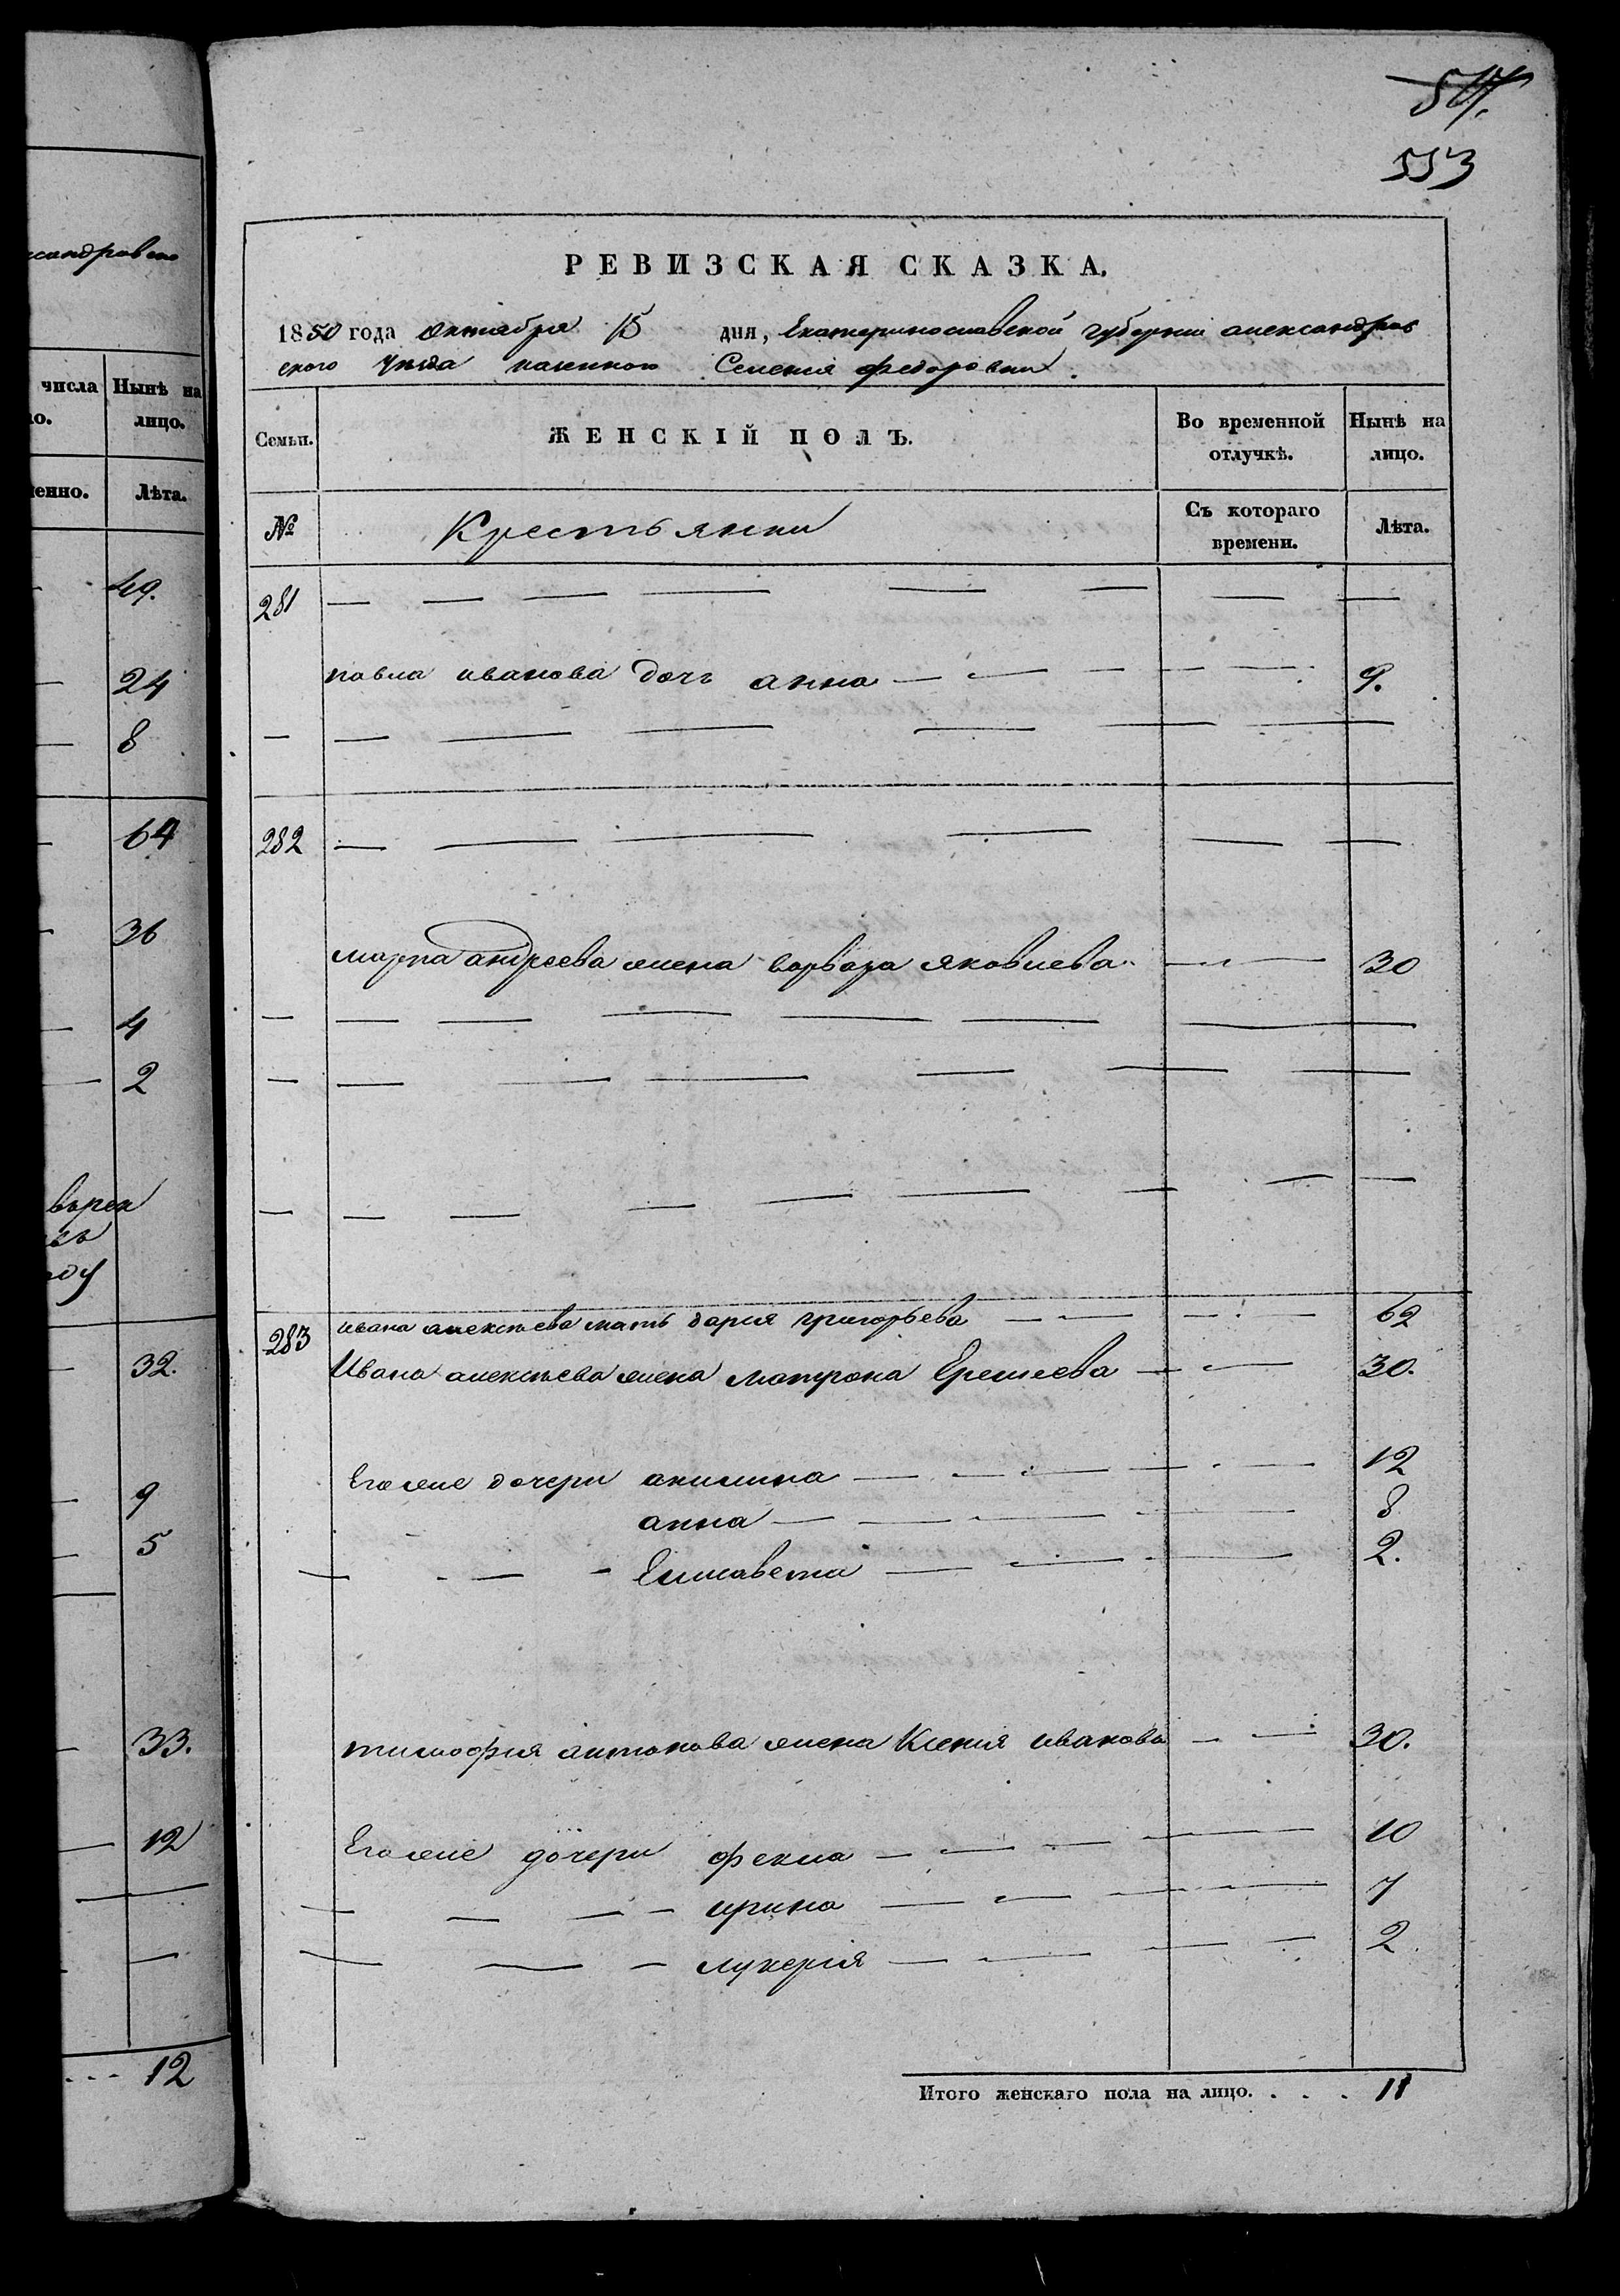 553
ксандровско
числа Нынѣ на
ло. лицо.
менно. Лѣта.
49.
24
8
64
36
4
2
32.
9
5
33.
12
12
РЕВИЗСКАЯ СКАЗКА.
1850 года октября 15 дня, Екатеринославской губерніи александров
ского уѣзда казенного Селенія федоровки.
Семьи. ЖЕНСКІЙ ПОЛЪ. Во временной отлучкѣ. Нынѣ на лицо.
№ Крестьянки Съ котораго времени. Лѣта.
281
павла иванова дочь анна 9.
282
марка андреева жена варвара яковлева 30
283 ивана алексѣева мать дарія григорьева 62
Ивана алексѣева жена матрона Еремеева 30.
Его же дочери акилина 12
анна 8
Елисавета 2.
тимофія антонова жена Ксенія иванова 30.
Его же дочери фекла 10
ирина 7
лукерія 2
Итого женскаго пола на лицо. . . . 11